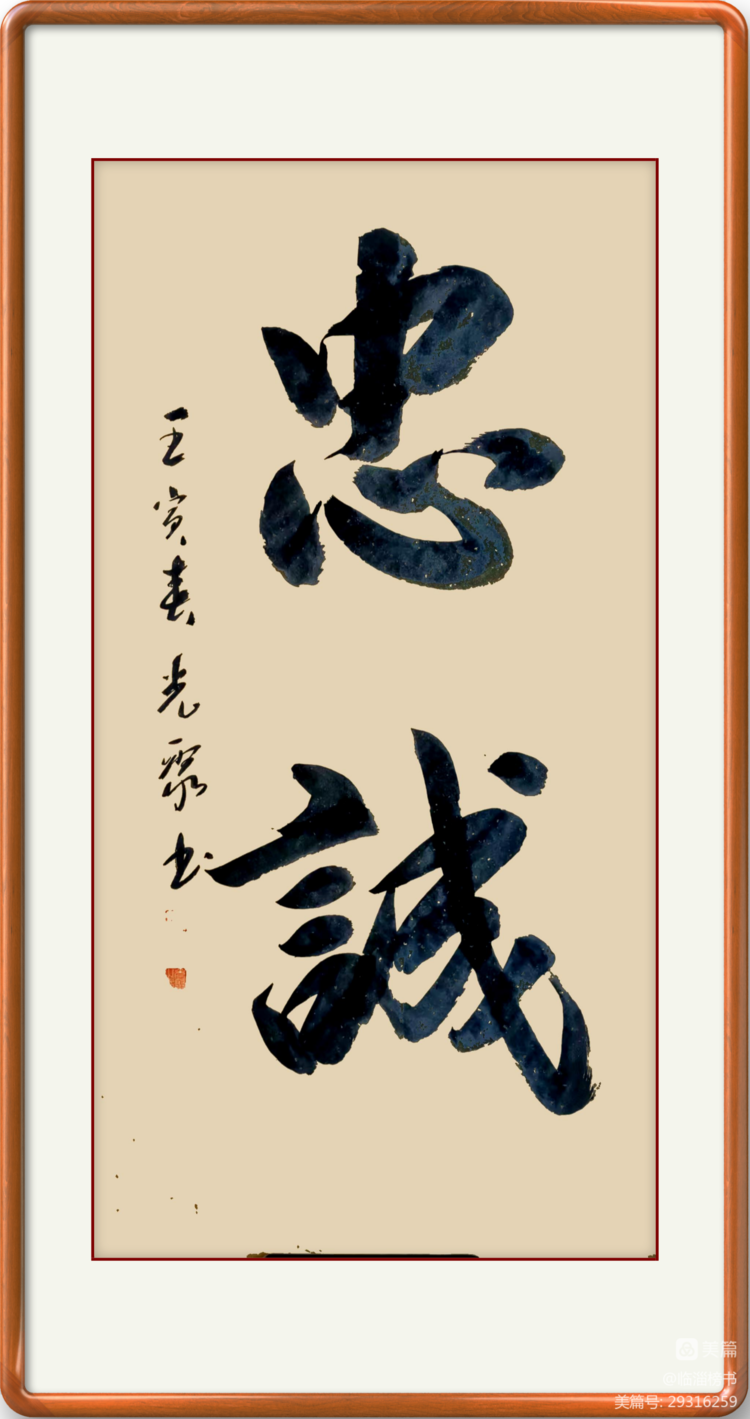 忠誠
壬寅春光聚书
美篇
美篇号: 29316259